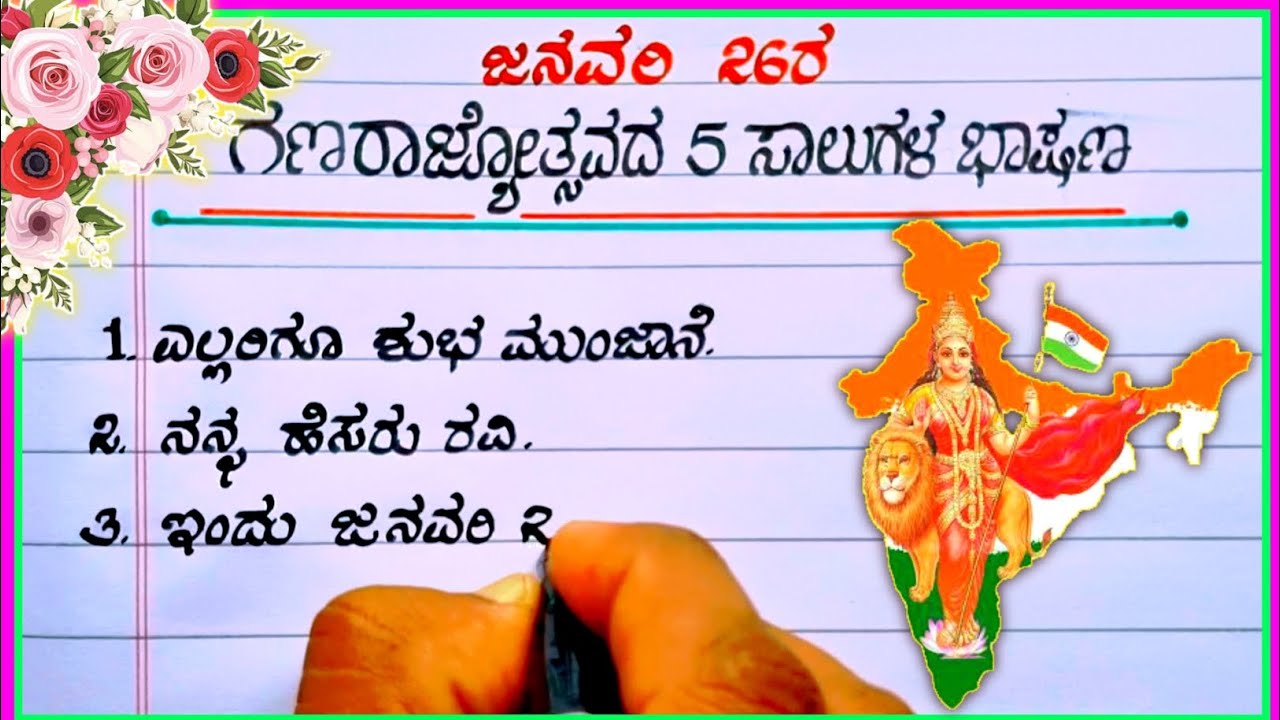 ಜನವರಿ 26ರ
ಗಣರಾಜ್ಯೋತ್ಸವದ 5 ಸಾಲುಗಳ ಭಾಷಣ
1. ಎಲ್ಲರಿಗೂ ಶುಭ ಮುಂಜಾನೆ.
2. ನನ್ನ ಹೆಸರು ರವಿ.
3. ಇಂದು ಜನವರಿ 2